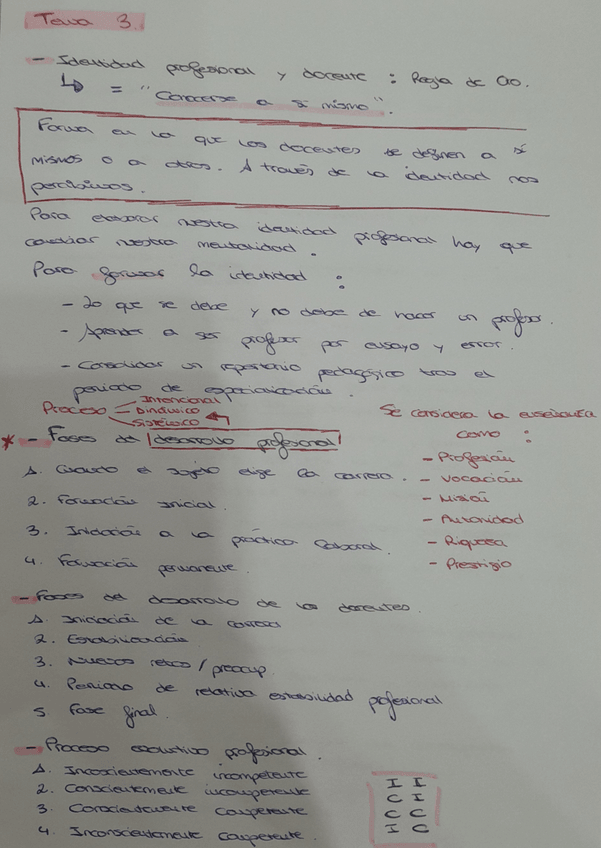 Tema 3.
- Identidad profesional y docente: Regla de oro.
↳ = "Conocerse a si mismo".
Forma en la que los docentes se definen a sí
mismos o a otros. A través de la identidad nos
percibimos.
Para elaborar nuestra identidad profesional hay que
cambiar nuestra mentalidad.
Para formar la identidad:
- Lo que se debe y no debe de hacer un profesor.
- Aprender a ser profesor por ensayo y error.
- Consolidar un repertorio pedagógico tras el
periodo de especialización.
Proceso - Intencional
- Dinámico
- Sistémico
* - Fases del desarrollo profesional
1. Cuando el sujeto elige la carrera.
2. Formación Inicial.
3. Iniciación a la práctica laboral.
4. Formación permanente.
Se considera la enseñanza
como:
- Profesión
- Vocación
- Misión
- Autoridad
- Riqueza
- Prestigio
- Fases del desarrollo de los docentes.
1. Iniciación de la carrera
2. Estabilización
3. Nuevos retos / preocup.
4. Periodo de relativa estabilidad profesional
5. Fase final.
- Proceso evolutivo profesional.
1. Inconscientemente incompetente
2. Conscientemente incompetente
3. Conscientemente competente
4. Inconscientemente competente.
I I
C I
C C
I C